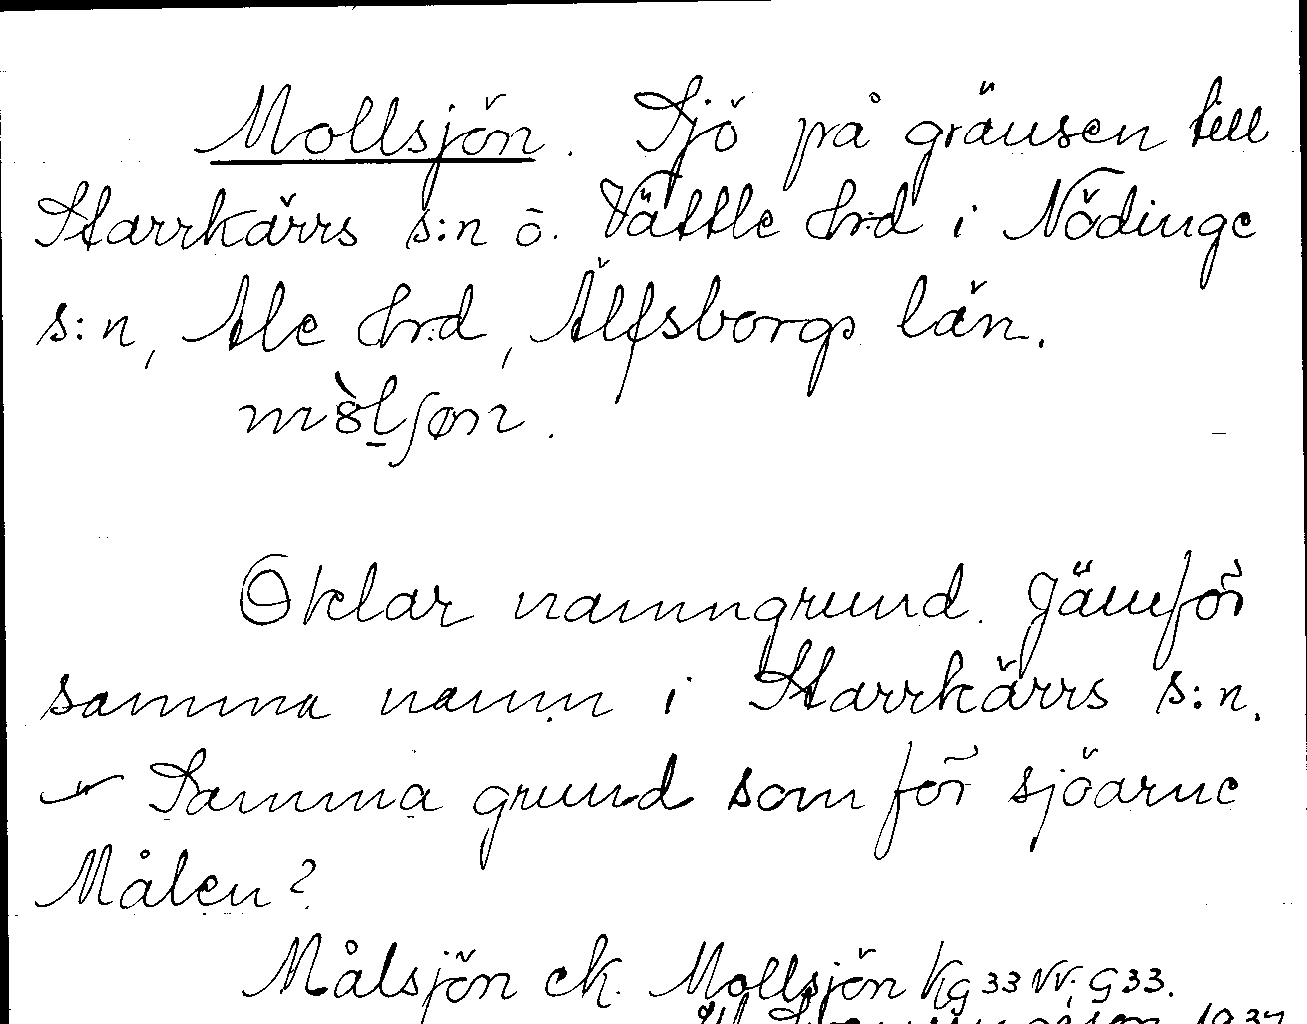 Mollsjön. Sjö på gränsen till
Starrkärrs s:n o. Vättle hrd i Nödinge
s:n, Ale hrd, Älfsborgs län.
Oklar namngrund. Jämför
samma namn i Starrkärrs s:n.
– Samma grund som för sjöarne
Målen?
Målsjön ek. Mollsjön Kg 33 VV. G 33.
1934